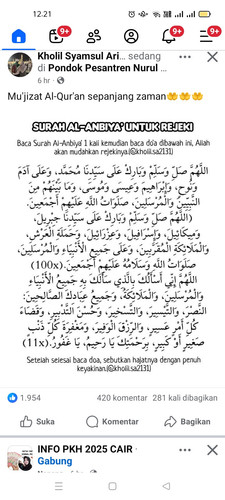 12.21
9+
9+
9+
Kholil Syamsul Ari... sedang
di Pondok Pesantren Nurul ...
6 hr
Mu'jizat Al-Qur'an sepanjang zaman🤲🤲🤲
SURAH AL-ANBIYA' UNTUK REJEKI
Baca Surah Al-Anbiya' 1 kali kemudian baca do'a dibawah ini, Allah
akan mudahkan rejekinya.(@kholil.sa2131)
اللَّهُمَّ صَلِّ وَسَلِّمْ وَبَارِكْ عَلَى سَيِّدِنَا مُحَمَّدٍ، وَعَلَى آدَمَ
وَنُوْحٍ، وَإِبْرَاهِيمَ وَعِيسَى وَمُوسَى، وَمَا بَيْنَهُمْ مِنَ
النَّبِيِّينَ وَالْمُرْسَلِينَ، صَلَوَاتُ اللَّهِ عَلَيْهِمْ أَجْمَعِينَ.
(اللَّهُمَّ صَلِّ وَسَلِّمْ وَبَارِكْ عَلَى سَيِّدِنَا جِبْرِيلَ،
وَمِيكَائِيلَ، وَإِسْرَافِيلَ، وَعِزْرَائِيلَ، وَحَمَلَةِ الْعَرْشِ،
وَالْمَلَائِكَةِ الْمُقَرَّبِينَ، وَعَلَى جَمِيعِ الْأَنْبِيَاءِ وَالْمُرْسَلِينَ،
صَلَوَاتُ اللَّهِ وَسَلَامُهُ عَلَيْهِمْ أَجْمَعِينَ.(100x)
اللَّهُمَّ إِنِّي أَسْأَلُكَ بِالَّذِي سَأَلَكَ بِهِ جَمِيعُ الْأَنْبِيَاءِ
وَالْمُرْسَلِينَ، وَالْمَلَائِكَةِ، وَجَمِيعِ عِبَادِكَ الصَّالِحِينَ:
النَّصْرَ، وَالتَّيْسِيرَ، وَالتَّسْخِيرَ، وَحُسْنَ التَّدْبِيرِ، وَقَضَاءَ
كُلِّ أَمْرٍ عَسِيرٍ، وَالرِّزْقَ الْوَفِيرَ، وَمَغْفِرَةَ كُلِّ ذَنْبٍ
صَغِيرٍ أَوْ كَبِيرٍ، بِرَحْمَتِكَ يَا رَحِيمُ، يَا غَفُورُ.(11x)
Setelah selesai baca doa, sebutkan hajatnya dengan penuh
keyakinan.(@kholil.sa2131)
1.954
420 komentar 281 kali dibagikan
Suka
Komentar
Bagikan
INFO PKH 2025 CAIR ·
Gabung